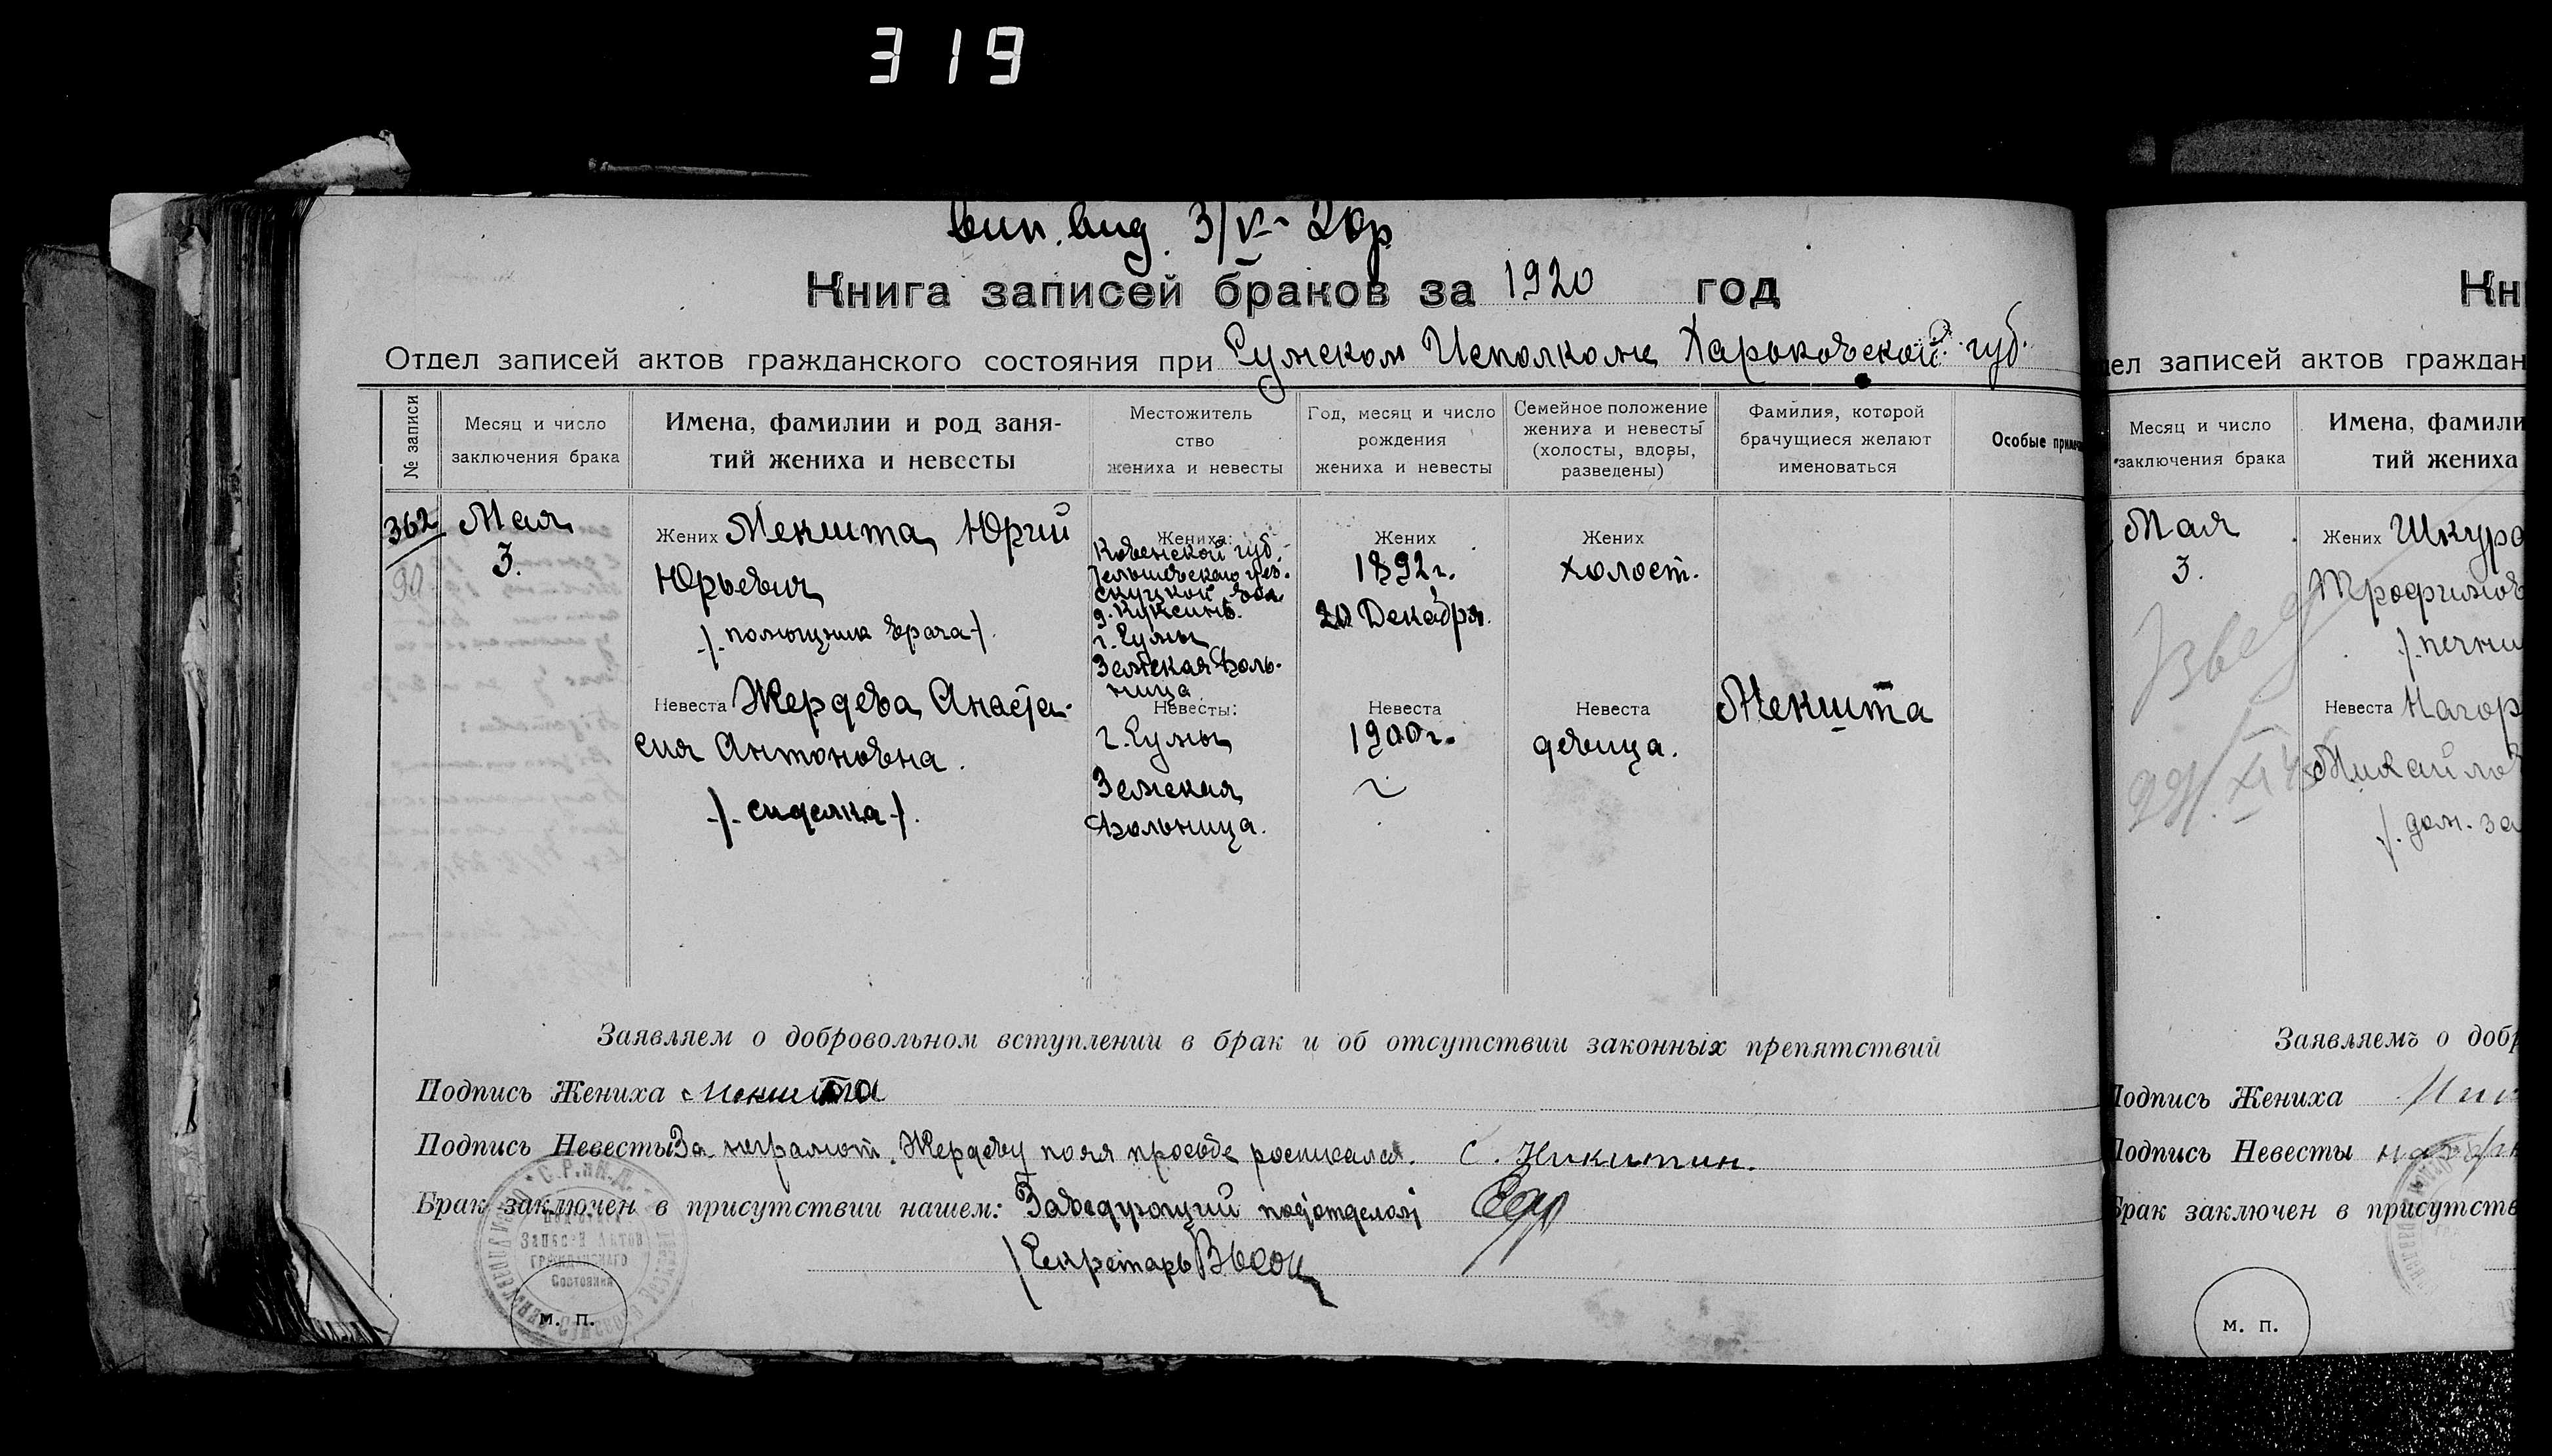 319
вип. вид. 3/V - 20р
Книга записей браков за 1920 год
Отдел записей актов гражданского состояния при Сумском Исполкоме Харьковской губ.
№ записи
Месяц и число
заключения брака
Имена, фамилии и род заня-
тий жениха и невесты
Местожитель
ство
жениха и невесты
Год, месяц и число
рождения
жениха и невесты
Семейное положение
жениха и невесты
(холосты, вдовы,
разведены)
Фамилия, которой
брачущиеся желают
именоваться
Особые примеча
362
90
Мая
3.
Жених Мекшта Юрий
Юрьевич
/. помощник врача /.
Невеста Жердева Анаста-
сия Антоновна.
/. сиделка /.
Жениха:
Ковенской губ.
Тельшевского уез.
вол.
г. Сумы
Земская боль-
ница
Невесты:
г. Сумы
Земская
больница.
Жених
1892 г.
20 Декабря.
Невеста
1900 г.
Жених
холост.
Невеста
девица.
Мекшта
Заявляем о добровольном вступлении в брак и об отсутствии законных препятствий
Подпись Жениха Мекшта
Подпись Невесты За неграмот. Жердеву по ея просьбе росписался. С. Никитин.
Брак заключен в присутствии нашем: Заведующий подотделом
Секретарь Высоц
Записей Актов
Гражданского
Состояния
м. п.
Кн
дел записей актов граждан
Месяц и число
заключения брака
Имена, фамили
тий жениха
Мая
3.
Жених Шкуро
Трофимов
/. печни
Невеста Нагор
Михайлов
/. дом. за
Заявляемъ о добр
Подпись Жениха
Подпись Невесты
Брак заключен в присутств
м. п.